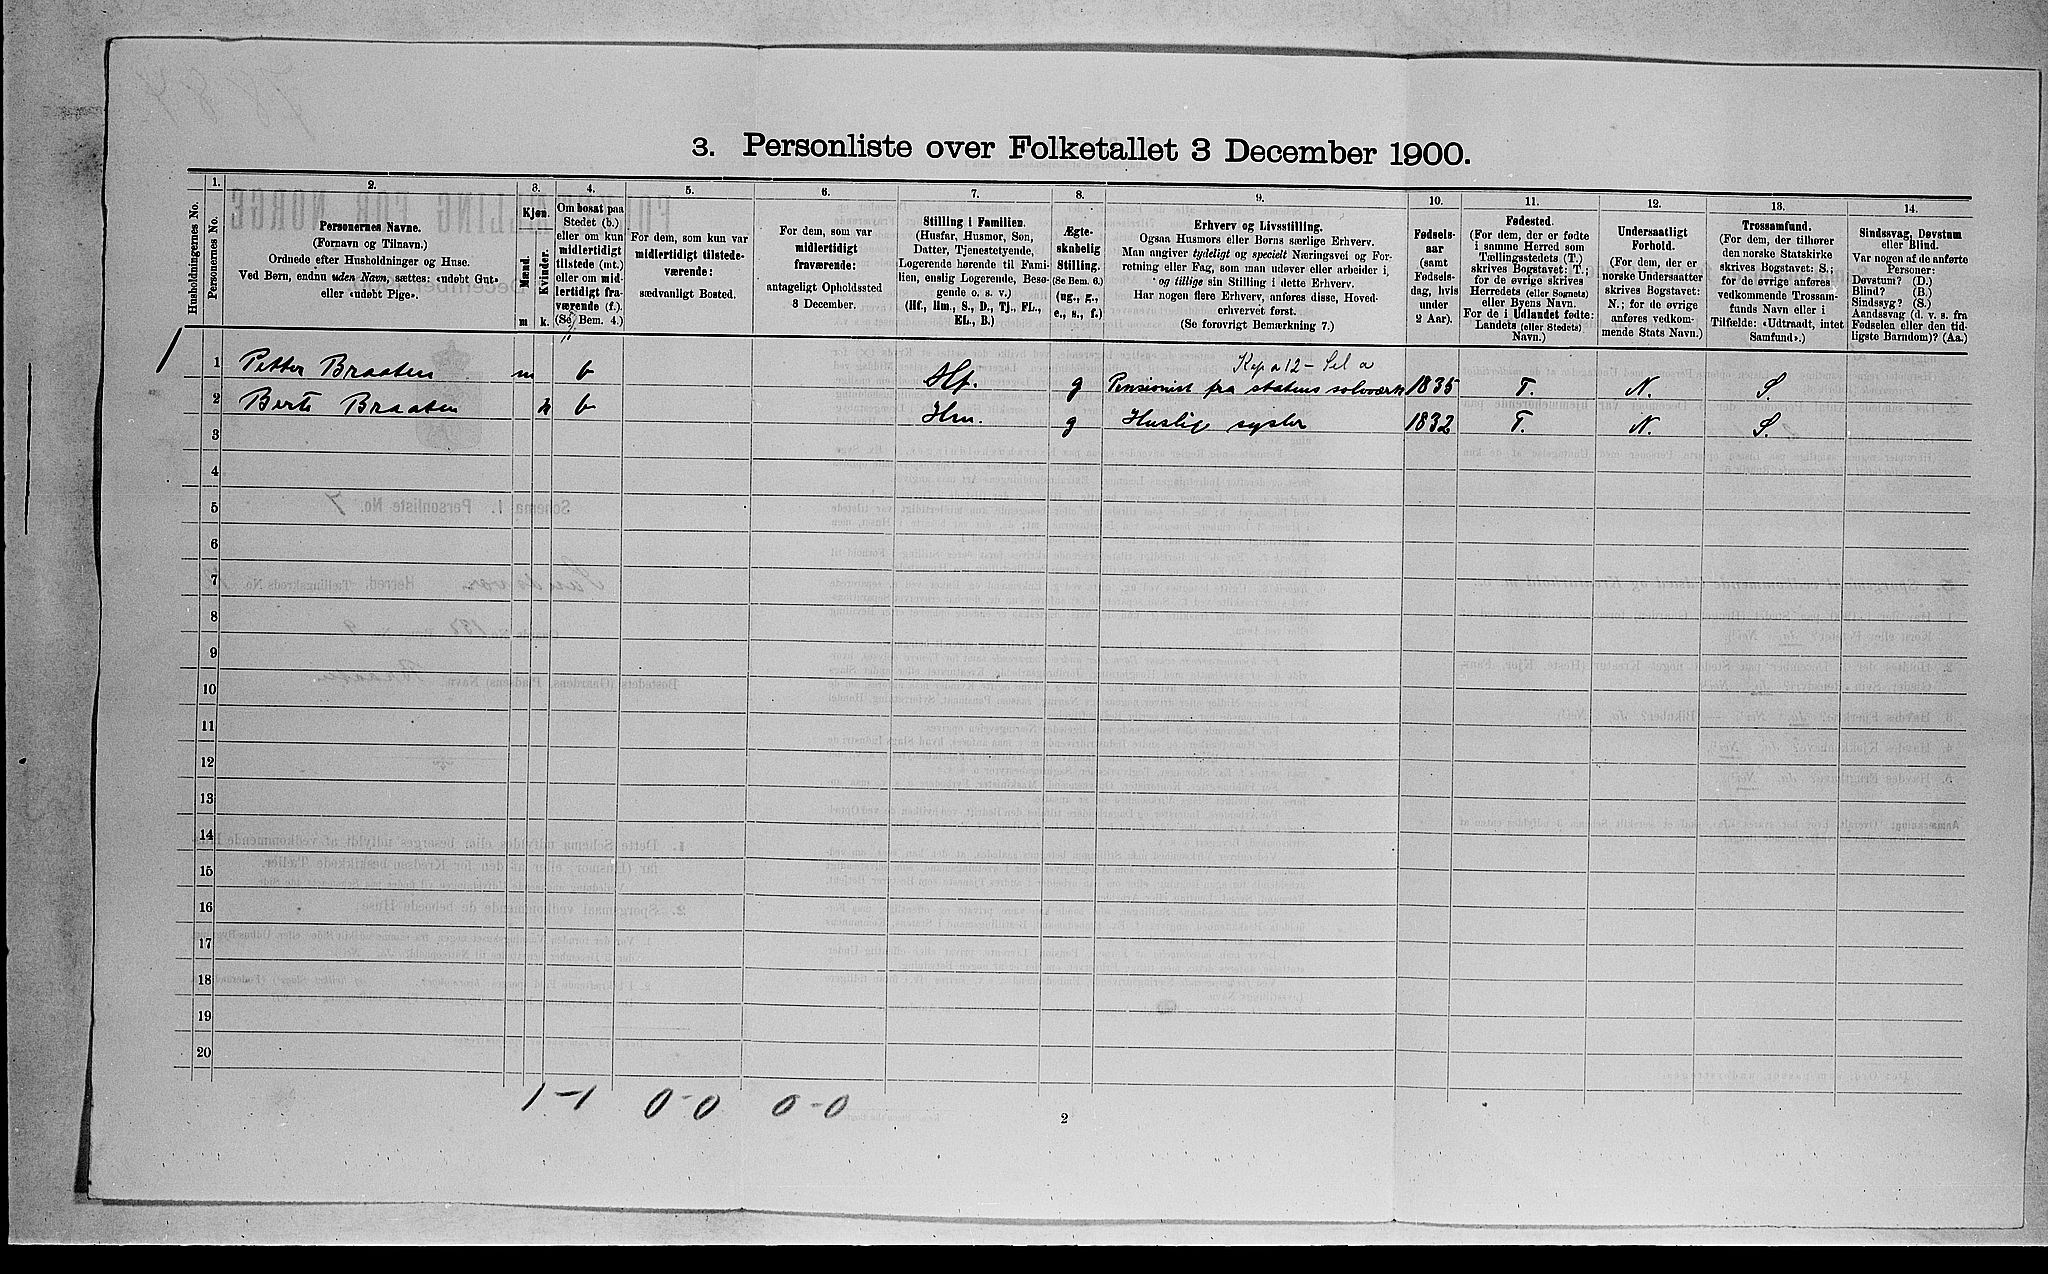 3. Personliste over Folketallet 3 December 1900.
1.
2.
3.
4.
5.
6.
7.
8.
9.
10.
11.
12.
13.
14.
Husholdningernes No.
Personernes No.
Personernes Navne.
(Fornavn og Tilnavn.)
Ordnede efter Husholdninger og Huse.
Ved Børn, endnu uden Navn, sættes: «udøbt Gut»
eller «udøbt Pige».
Kjøn.
Mænd.
Kvinder.
m
k.
Om bosat paa
Stedet (b.)
eller om kun
midlertidigt
tilstede (mt.)
eller om mid-
lertidigt fra-
værende (f.)
(Se Bem. 4.)
For dem, som kun var
midlertidigt tilstede-
værende:
sædvanligt Bosted.
For dem, som var
midlertidigt
fraværende:
antageligt Opholdssted
3 December.
Stilling i Familien.
(Husfar, Husmor, Søn,
Datter, Tjenestetyende,
Logerende hørende til Fami-
lien, enslig Logerende, Besø-
gende o. s. v.)
(Hf., Hm., S., D., Tj., FL.,
EL., B.)
Ægte-
skabelig
Stilling.
(Se Bem. 6.)
(ug., g.,
e., s., f.)
Erhverv og Livsstilling.
Ogsaa Husmors eller Børns særlige Erhverv.
Man angiver tydeligt og specielt Næringsvei og For-
retning eller Fag, som man udøver eller arbeider i,
og tillige sin Stilling i dette Erhverv.
Har nogen flere Erhverv, anføres disse, Hoved-
erhvervet først.
(Se forøvrigt Bemærkning 7.)
Fødsels-
aar
(samt
Fødsels-
dag, hvis
under
2 Aar).
Fødested.
(For dem, der er fødte
i samme Herred som
Tællingsstedets (T.)
skrives Bogstavet: T.;
for de øvrige skrives
Herredets (eller Sognets)
eller Byens Navn.
For de i Udlandet fødte:
Landets (eller Stedets)
Navn.)
Undersaatligt
Forhold.
(For dem, der er
norske Undersaatter
skrives Bogstavet:
N.; for de øvrige
anføres vedkom-
mende Stats Navn.)
Trossamfund.
(For dem, der tilhører
den norske Statskirke
skrives Bogstavet: S.;
for de øvrige anføres
vedkommende Trossam-
funds Navn eller i
Tilfælde: «Udtraadt, intet
Samfund».)
Sindssvag, Døvstum
eller Blind.
Var nogen af de anførte
Personer:
Døvstum? (D.)
Blind? (B.)
Sindssyg? (S.)
Aandssvag (d. v. s. fra
Fødselen eller den tid-
ligste Barndom)? (Aa.)
Kap a 12 - Sel a
1 1 Petter Braaten m b Hf. g Pensionist fra statens solvværk 1835 T. N. S.
2 Berte Braaten k b Hm. g Huslig sysler 1832 T. N. S.
3
4
5
6
7
8
9
10
11
12
13
14
15
16
17
18
19
20
1-1 0-0 0-0
2